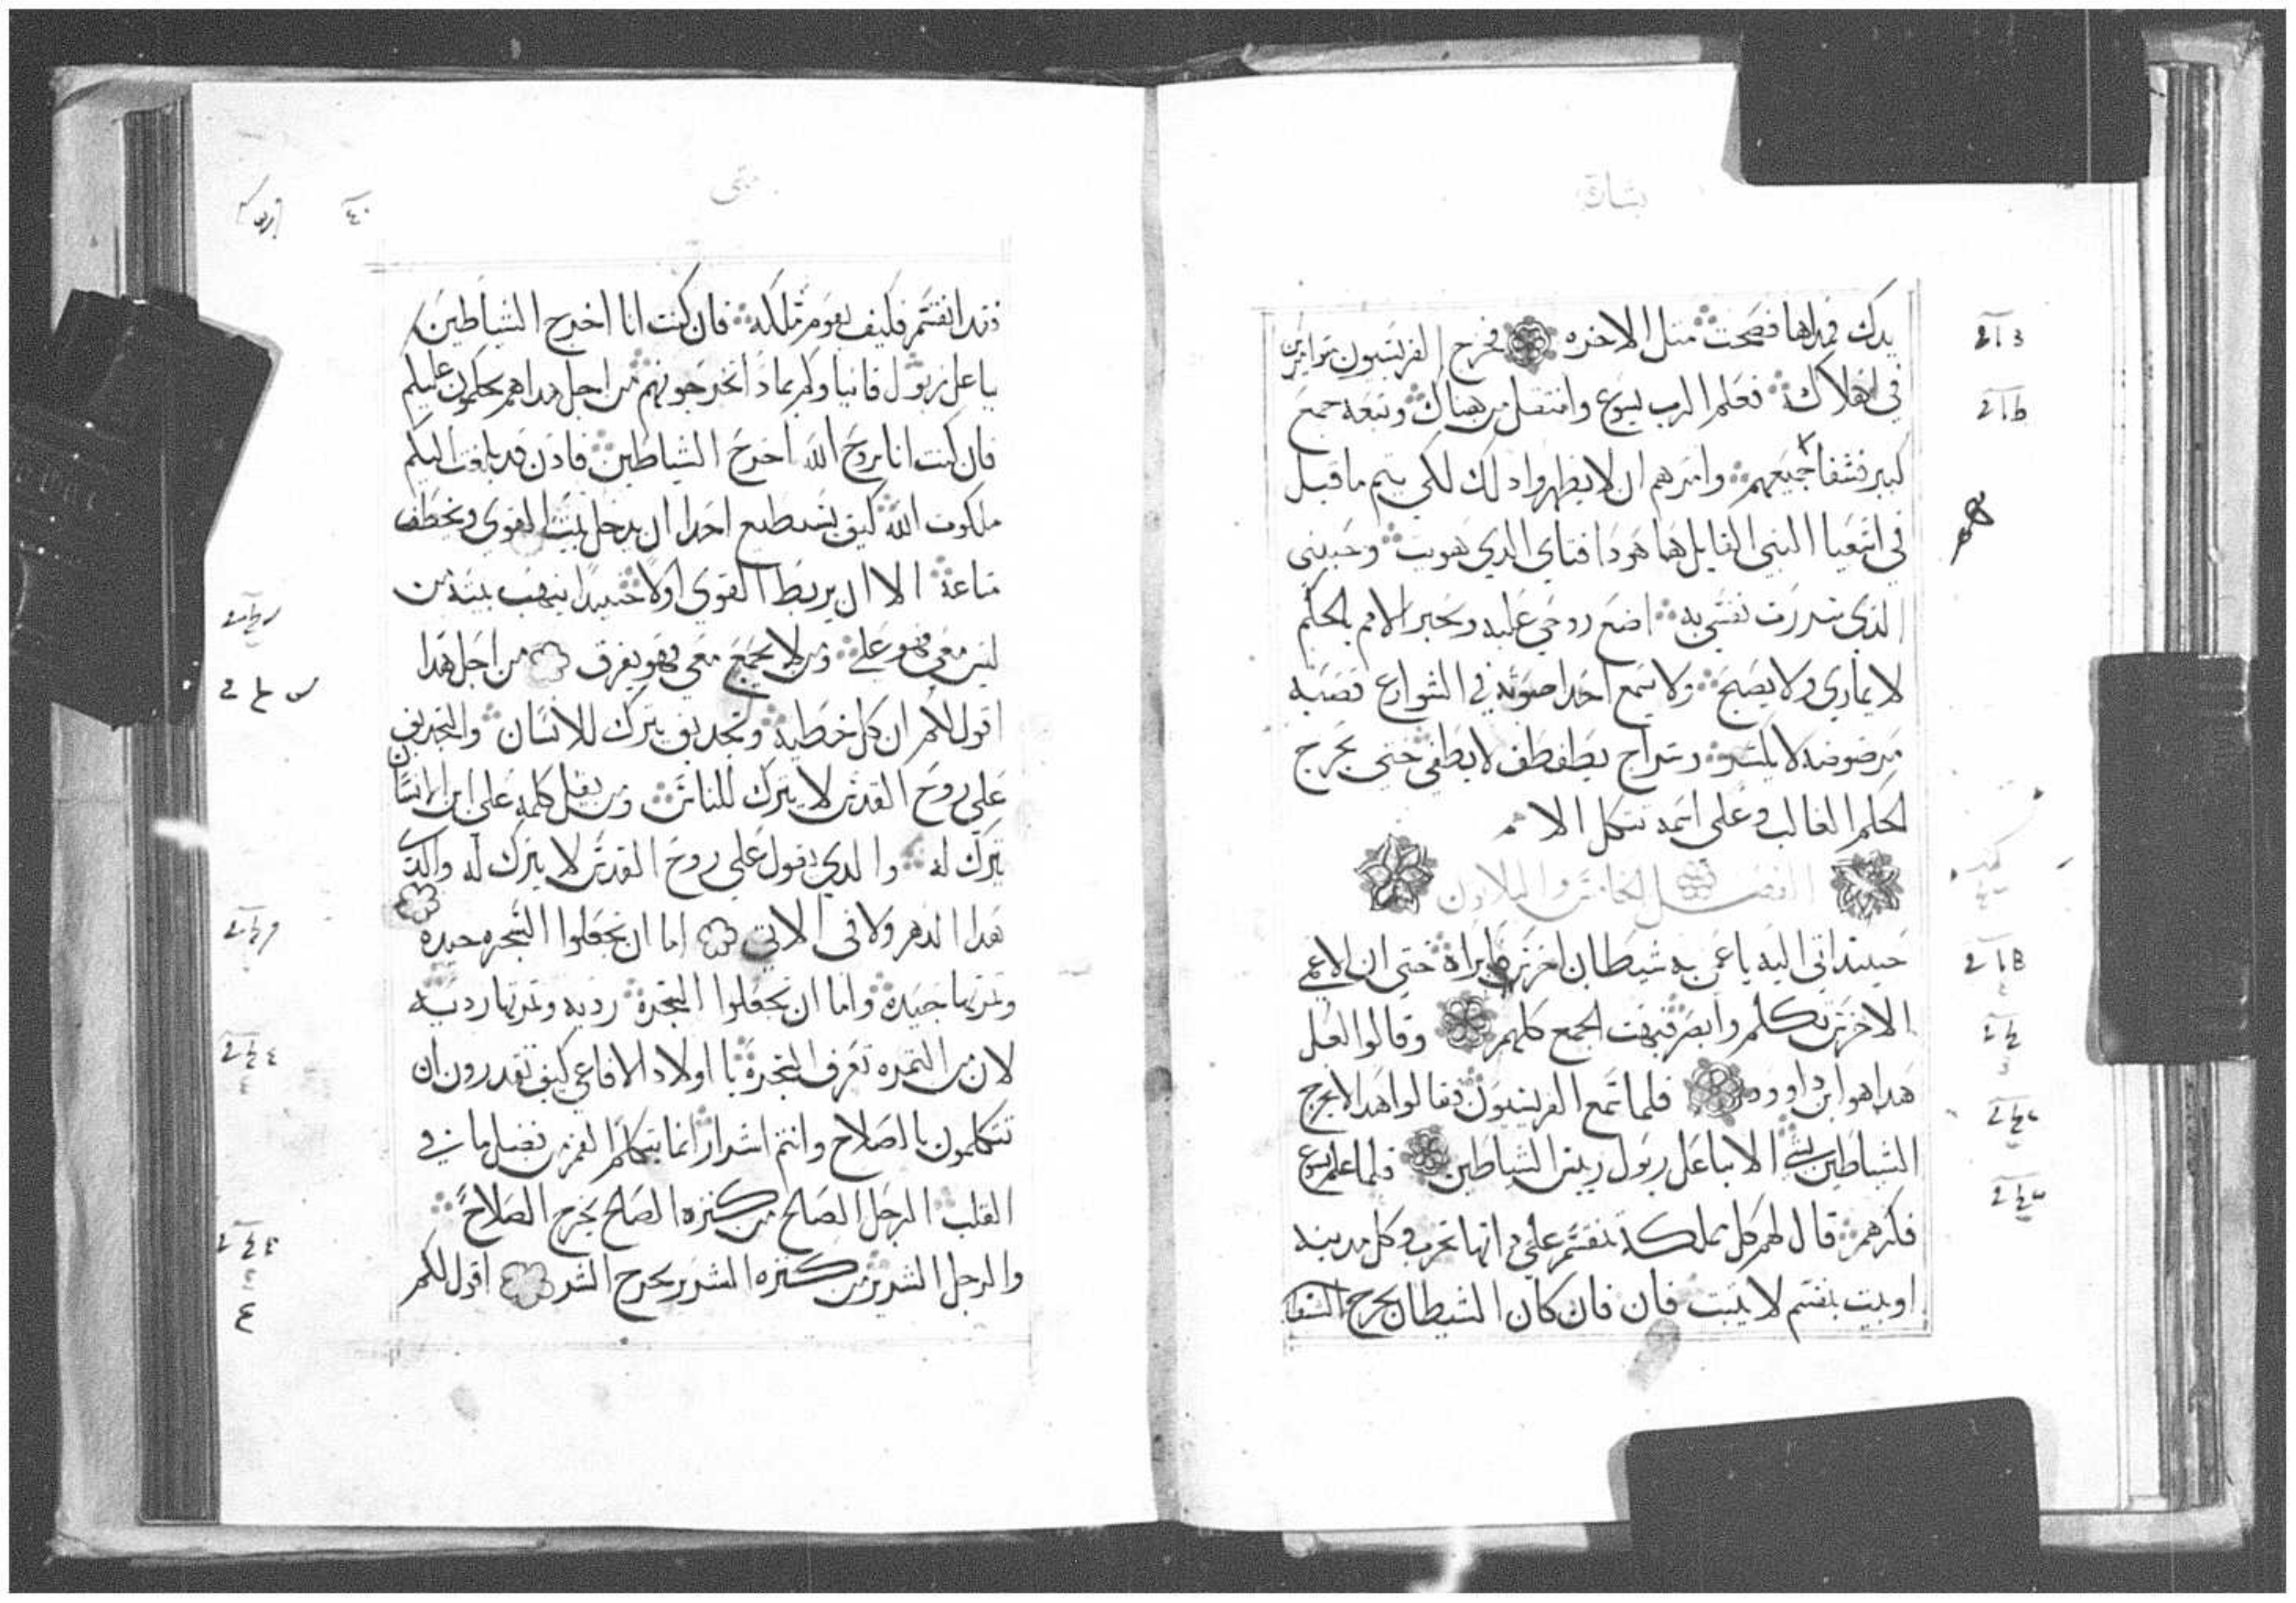 بشارة
يدك فمدها فصحت متل الاخره فخرج الفريسيون متوامرين
في اهلاكه فعلم الرب يسوع وانتقل من هناك وتبعه جمع
كبير فشفا جميعهم وامرهم ان لا يظهروا دلك لكي يتم ما قيل
في اشعيا النبي القايل ها هودا فتاي الدي هويت وحبيبي
الذي سررت نفسي به اضع روحي عليه ويخبر الامم بالحكم
لا يماري ولا يصيح ولا يسمع احدا صوته في الشوارع قصبه
مرضوضه لا يكسر وسراج يطفطف لا يطفي حتي يخرج
الحكم الغالب وعلى اسمه تتكل الامم
الفصل الخامس والتلاتون
حينيد اتي اليه باعمى به شيطان اخرس فابراه حتي ان الاعمي
الاخرس تكلم وابصر فبهت الجمع كلهم وقالوا لعل
هدا هو ابن داوود فلما سمع الفريسيون فقالوا هدا لا يخرج
الشياطين بشي الا بباعل زبول رييس الشياطين فلما علم يسوع
فكرهم قال لهم كل مملكه تنقسم على داتها تخرب وكل مدينه
او بيت ينقسم لا يثبت فان فان كان الشيطان يخرج الشيطان
متى
٤٠
فقد انقسم فكيف تقوم مملكته فان كنت انا اخرج الشياطين
بباعل زبول فابناوكم بمادا تخرجونهم من اجل هدا هم يحكمون عليكم
فان كنت انا بروح الله اخرج الشياطين فادن قد بلغت اليكم
ملكوت الله كيف يستطيع احدا ان يدخل بيت القوي ويخطف
متاعه الا ان يربط القوي اولا حينيدا ينهب بيته من
ليس معي فهو علي ومن لا يجمع معي فهو يفرق من اجل هدا
اقول لكم ان كل خطيه وتجديف يترك للانسان والتجديف
على روح القدس لا يترك للناس ومن يقل كلمه على ابن الانسان
يترك له والدي يقول على روح القدس لا يترك له والدي
هدا الدهر ولا في الاتي اما ان تجعلوا الشجره جيده
وتمرتها جيده واما ان تجعلوا الشجرة رديه وتمرتها رديه
لان من التمره تعرف الشجرة يا اولاد الافاعي كيف تقدرون ان
تتكلمون بالصلاح وانتم اشرار انما يتكلم الفم من فضل ما في
القلب الرجل الصالح من كنزه الصالح يخرج الصلاح
والرجل الشرير من كنزه الشرير يخرج الشر اقول لكم